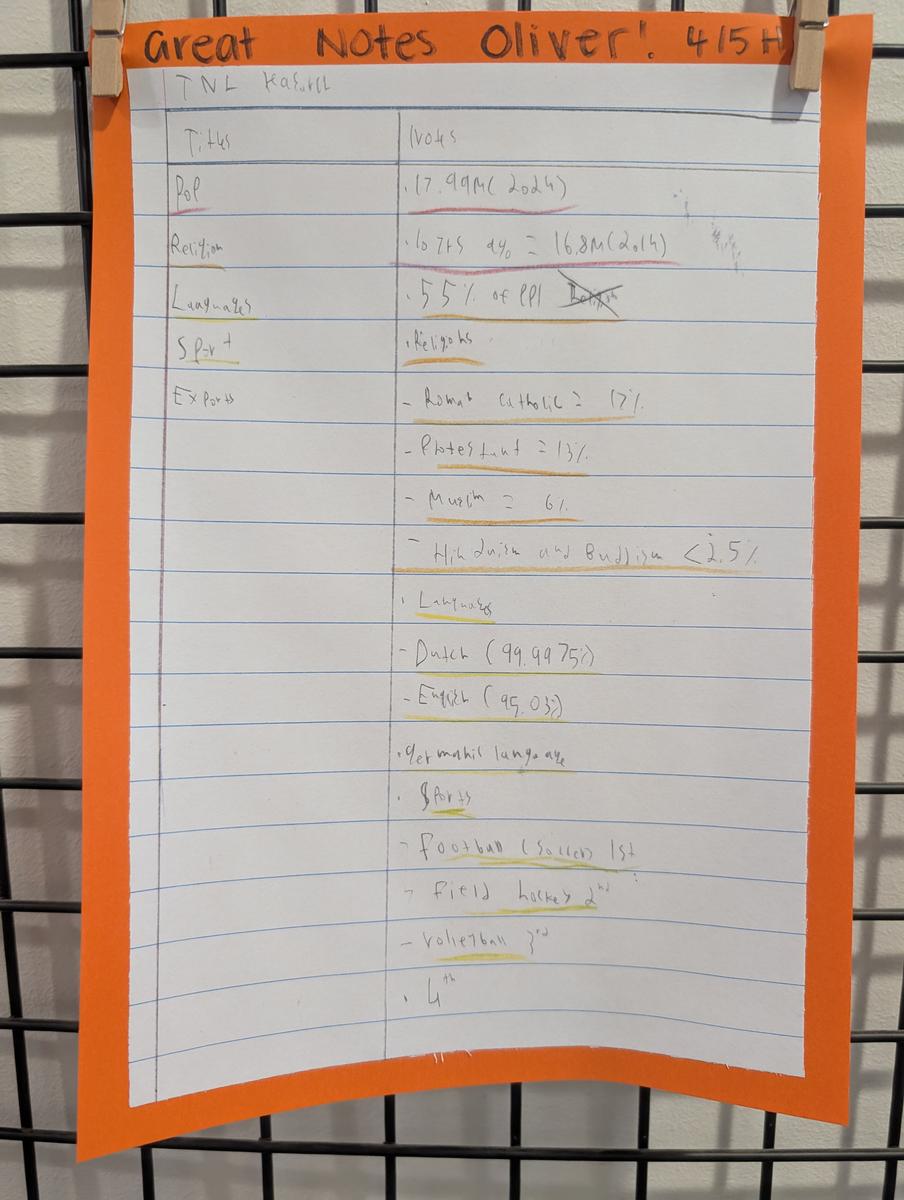 Great Notes Oliver! 4/5H
TNL
Titles Notes
Pop .17.99M(2024)
Religion .10 yrs ago = 16.8M(2014)
Languages .55% of ppl
Sport .Religons
Exports - Roman Catholic = 17%
- Protestant = 13%
- Muslim = 6%
- Hinduism and Buddism <2.5%
. Languages
- Dutch (99.9975%)
- English (95.03%)
.germanic language
. Sports
- Football (Soccer) 1st
- Field hockey 2nd
- Volleyball 3rd
. 4th